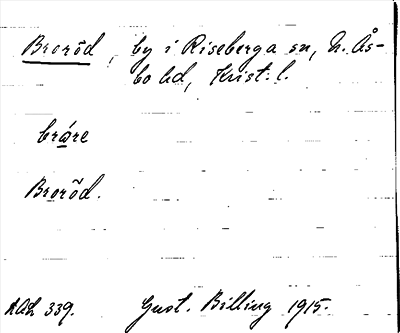 Broröd, by i Riseberga sn, N. Ås-
bo hd, Krist. l.
bråre
Broröd.
339.
Gust. Billing 1915.